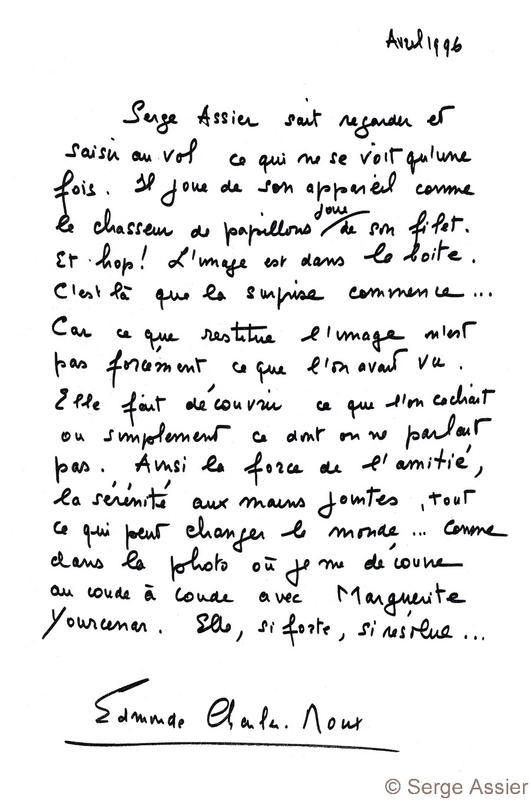 Avril 1996
Serge Assier sait regarder et
saisir au vol ce qui ne se voit qu'une
fois. Il joue de son appareil comme
le chasseur de papillons joue de son filet.
Et hop! L'image est dans la boite.
C'est là que la surprise commence...
Car ce que restitue l'image n'est
pas forcément ce que l'on avait vu.
Elle fait découvrir ce que l'on cachait
ou simplement ce dont on ne parlait
pas. Ainsi la force de l'amitié,
la sérénité aux mains jointes, tout
ce qui peut changer le monde... Comme
dans la photo où je me découvre
au coude à coude avec Marguerite
Yourcenar. Elle, si forte, si résolue...
Edmonde Charles-Roux
© Serge Assier